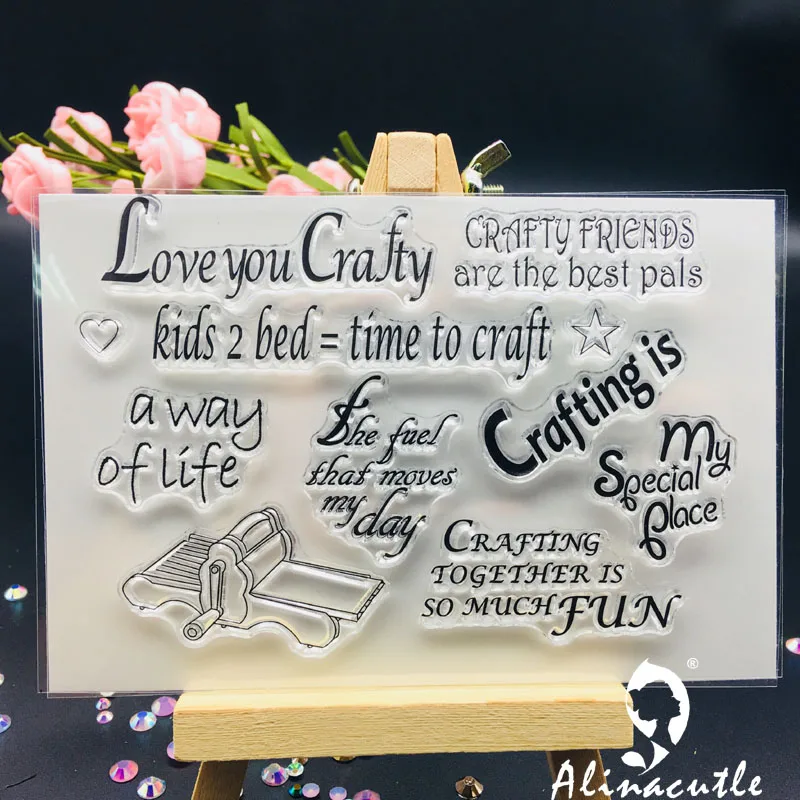 Love you Crafty
CRAFTY FRIENDS
are the best pals
kids 2 bed = time to craft
Crafting is
a way
of life
The fuel
that moves
my day
My
Special
Place
CRAFTING
TOGETHER IS
SO MUCH FUN
®
Alinacutle